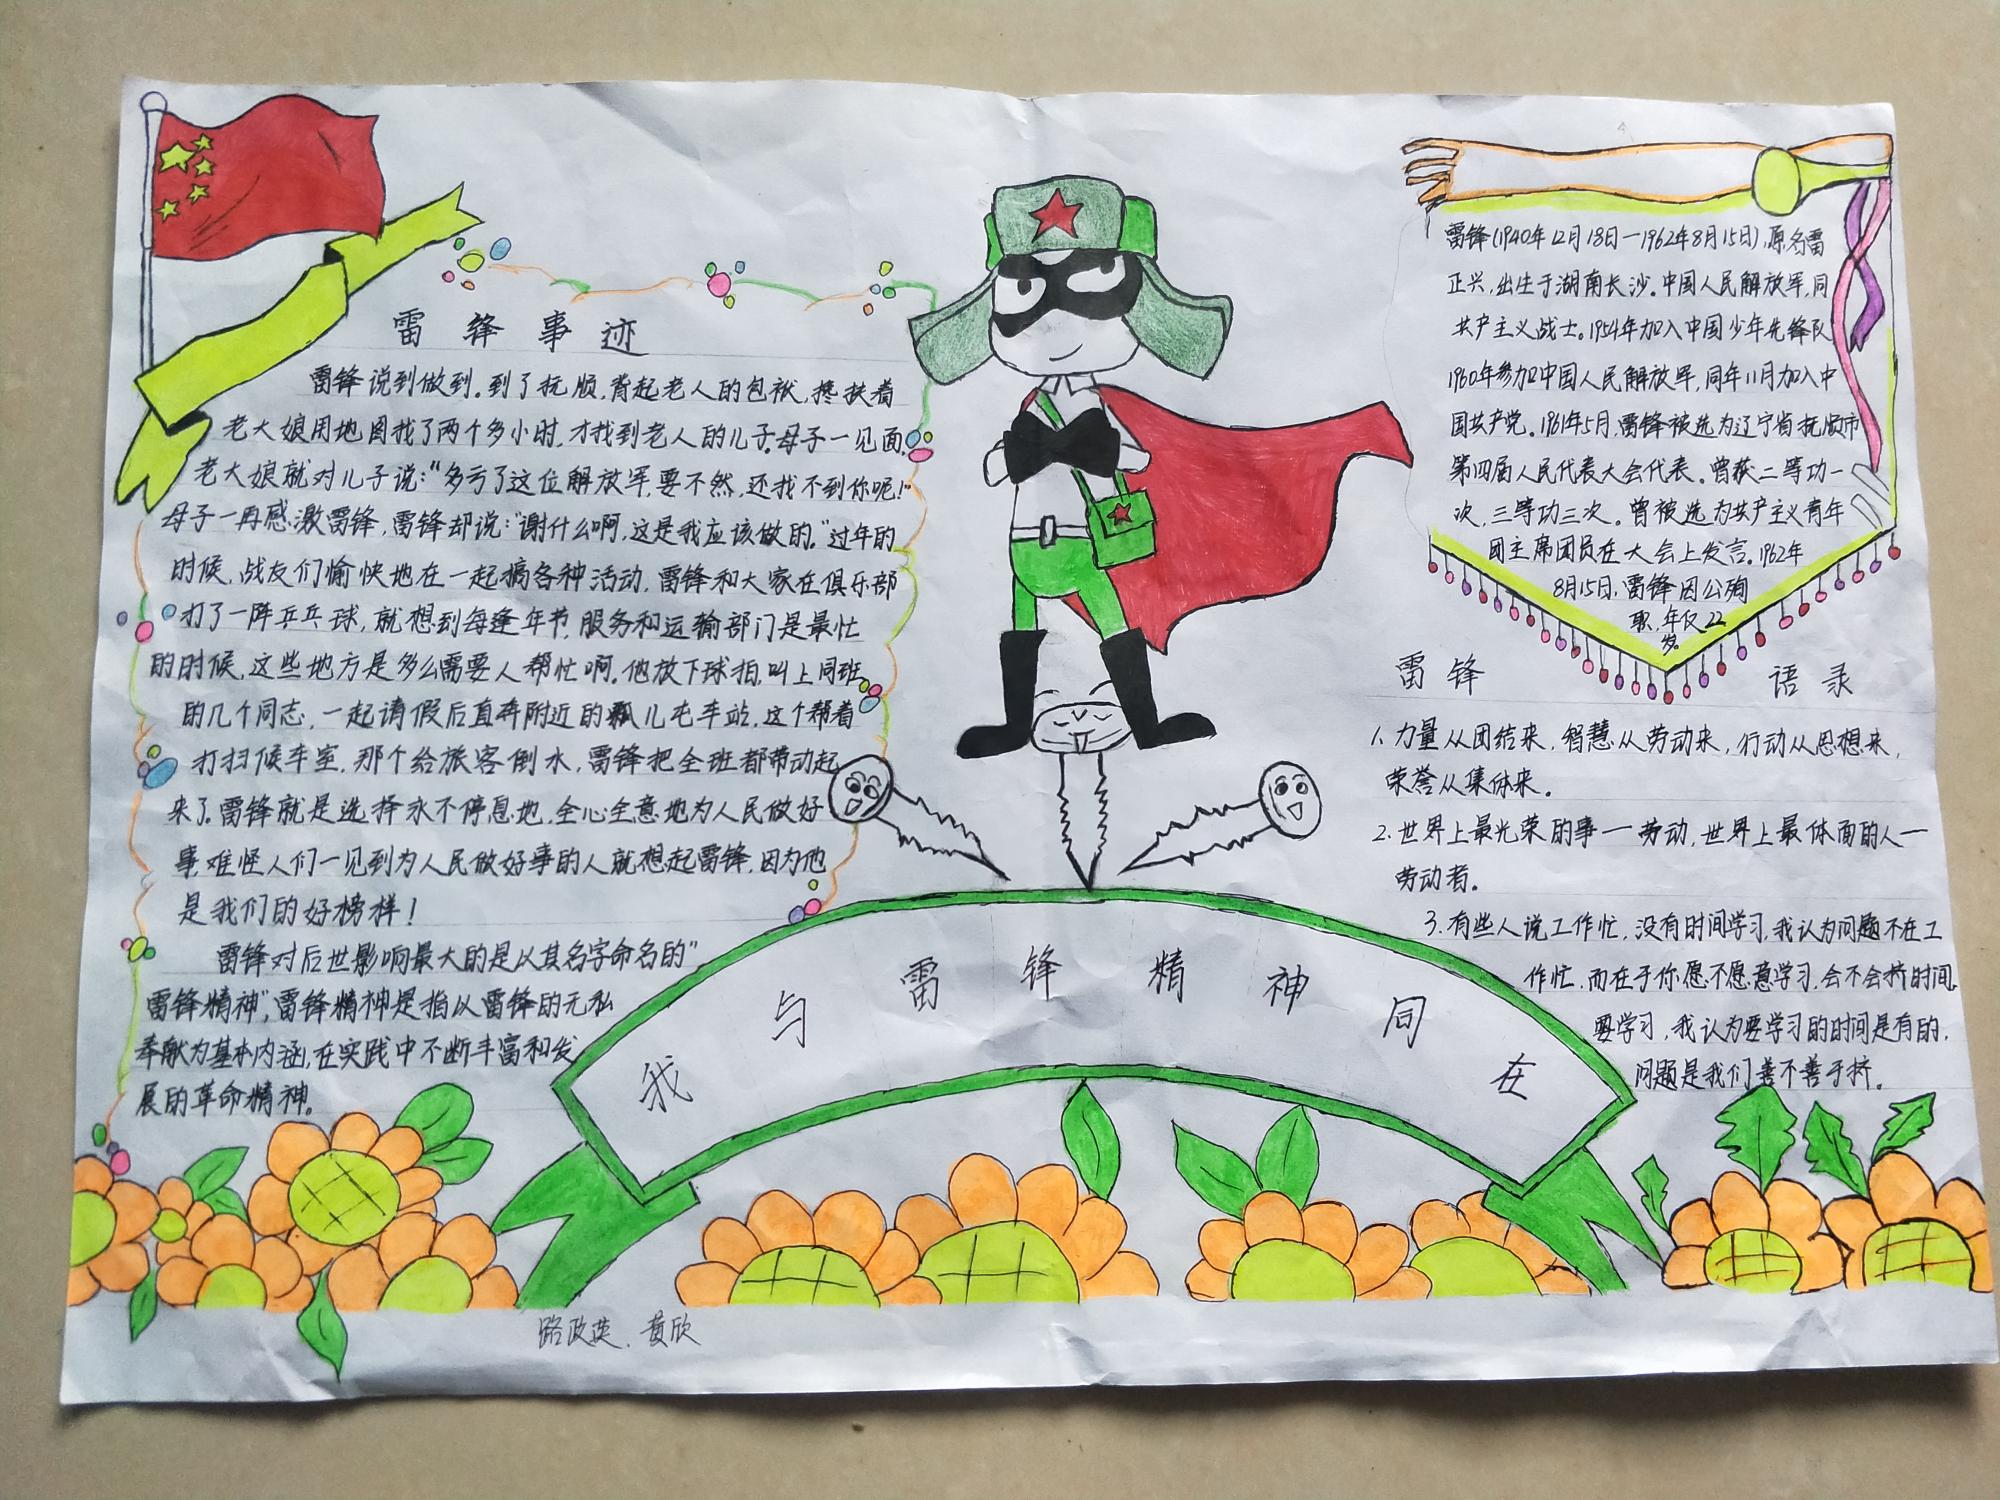 雷锋事迹
雷锋说到做到。到了抚顺,背起老人的包袱,搀扶着
老大娘用地图找了两个多小时,才找到老人的儿子。母子一见面,
老大娘就对儿子说:"多亏了这位解放军,要不然,还找不到你呢!"
母子一再感激雷锋,雷锋却说:"谢什么啊,这是我应该做的。"过年的
时候,战友们愉快地在一起搞各种活动,雷锋和大家在俱乐部
打了一阵乒乓球,就想到每逢年节,服务和运输部门是最忙
的时候,这些地方是多么需要人帮忙啊。他放下球拍,叫上同班
的几个同志,一起请假后直奔附近的瓢儿屯车站,这个帮着
打扫候车室,那个给旅客倒水,雷锋把全班都带动起
来了。雷锋就是选择永不停息地,全心全意地为人民做好
事,难怪人们一见到为人民做好事的人就想起雷锋,因为他
是我们的好榜样!
雷锋对后世影响最大的是以其名字命名的"
雷锋精神",雷锋精神是指以雷锋的无私
奉献为基本内涵,在实践中不断丰富和发
展的革命精神。
我与雷锋精神同在
雷锋(1940年12月18日—1962年8月15日),原名雷
正兴,出生于湖南长沙。中国人民解放军,同
共产主义战士。1954年加入中国少年先锋队
1960年参加中国人民解放军,同年11月加入中
国共产党。1961年5月,雷锋被选为辽宁省抚顺市
第四届人民代表大会代表。曾获二等功一
次,三等功三次。曾被选为共产主义青年
团主席团员在大会上发言。1962年
8月15日,雷锋因公殉
职,年仅22
岁。
雷锋语录
1.力量从团结来,智慧从劳动来,行动从思想来,
荣誉从集体来。
2.世界上最光荣的事—劳动,世界上最体面的人—
劳动者。
3.有些人说工作忙,没有时间学习,我认为问题不在工
作忙,而在于你愿不愿意学习,会不会挤时间,
要学习,我认为要学习的时间是有的,
问题是我们善不善于挤。
路政英、黄欣